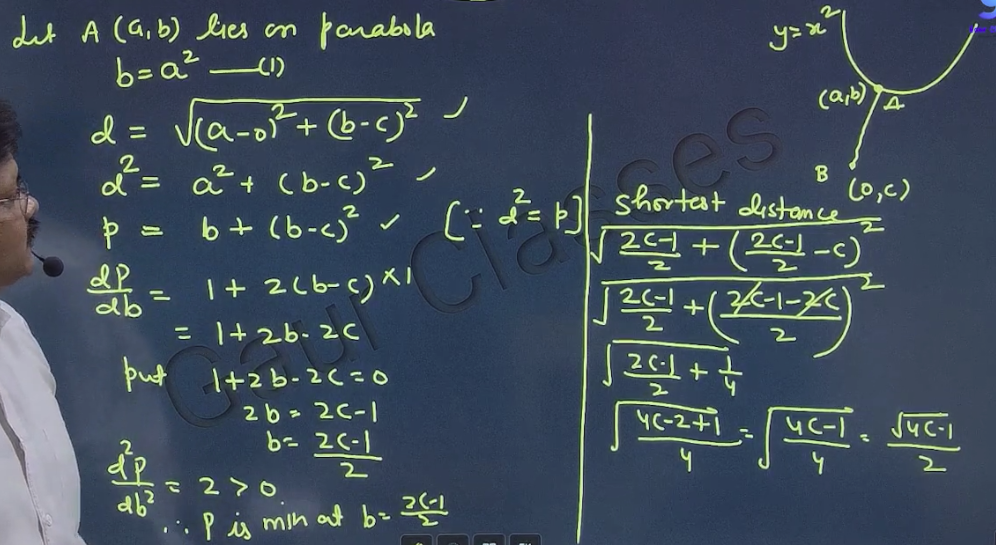 Let A (a,b) lies on parabola
b = a² —(1)
d = √((a-0)² + (b-c)²) ✓
d² = a² + (b-c)² ✓
p = b + (b-c)² ✓ [∵ d² = p]
dp/db = 1 + 2(b-c) × 1
= 1 + 2b - 2c
put 1 + 2b - 2c = 0
2b = 2c-1
b = (2c-1)/2
d²p/db² = 2 > 0
∴ p is min at b = (2c-1)/2
y = x²
(a,b) A
B (0,c)
shortest distance
√((2c-1)/2 + ((2c-1)/2 - c)²)
√((2c-1)/2 + ((2c-1-2c)/2)²)
√((2c-1)/2 + 1/4)
√((4c-2+1)/4) = √((4c-1)/4) = √(4c-1)/2
Gaur Classes